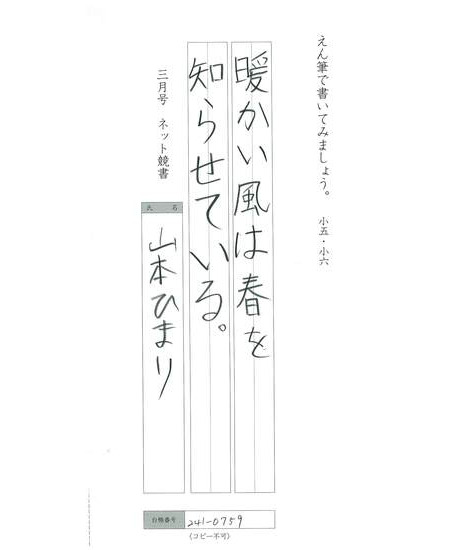 えん筆で書いてみましょう。 小五・小六
暖かい風は春を
知らせている。
三月号 ネット競書
氏名
山本ひまり
台帳番号 241-0759
(コピー不可)